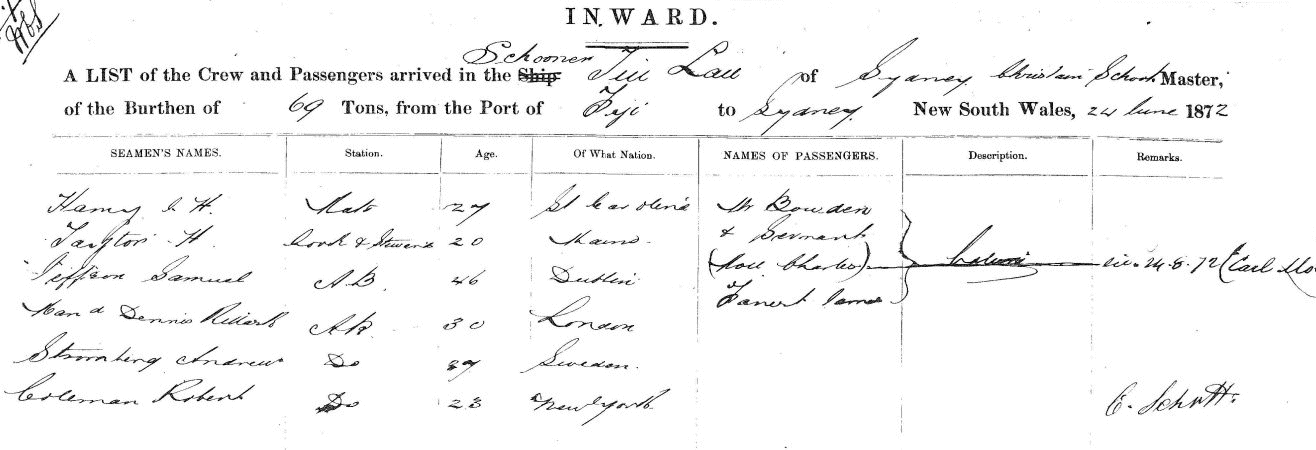 INWARD.
Schooner
A LIST of the Crew and Passengers arrived in the Ship Tui Lau of Sydney Christain Schott Master,
of the Burthen of 69 Tons, from the Port of Fiji to Sydney New South Wales, 24 June 1872
SEAMEN'S NAMES. Station. Age. Of What Nation. NAMES OF PASSENGERS. Description. Remarks.
H. Mate 27 St Carolina Mr Bowden
H. Cook & Steward 20 Maine & Servant
Samuel AB 46 Dublin Charles 24.8.72 (Carl
Dennis AB 30 London James
Stromberg Andrew Do 39 Sweden.
Coleman Robert Do 23 New York
C. Schott.